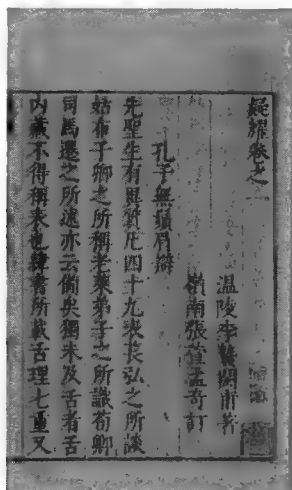 疑耀卷之一
温陵李贄閎甫著
嶺南張萱孟奇訂
孔子無鬚眉辯
先聖生有異質凡四十九表萇弘之所談
姑布子卿之所稱老萊弟子之所識荀卿
司馬遷之所述亦云備矣獨未及舌者舌
內藏不得稱表也緯書所載舌理七重又